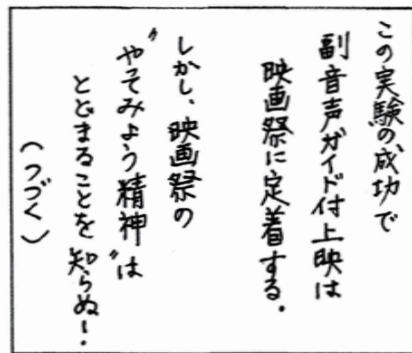 この実験の成功で
副音声ガイド付上映は
映画祭に定着する.
しかし、映画祭の
〝やってみよう精神〟は
とどまることを知らぬ!.
(つづく)